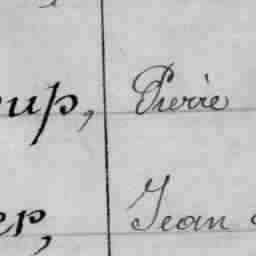 oup, Pierre
er, Jean